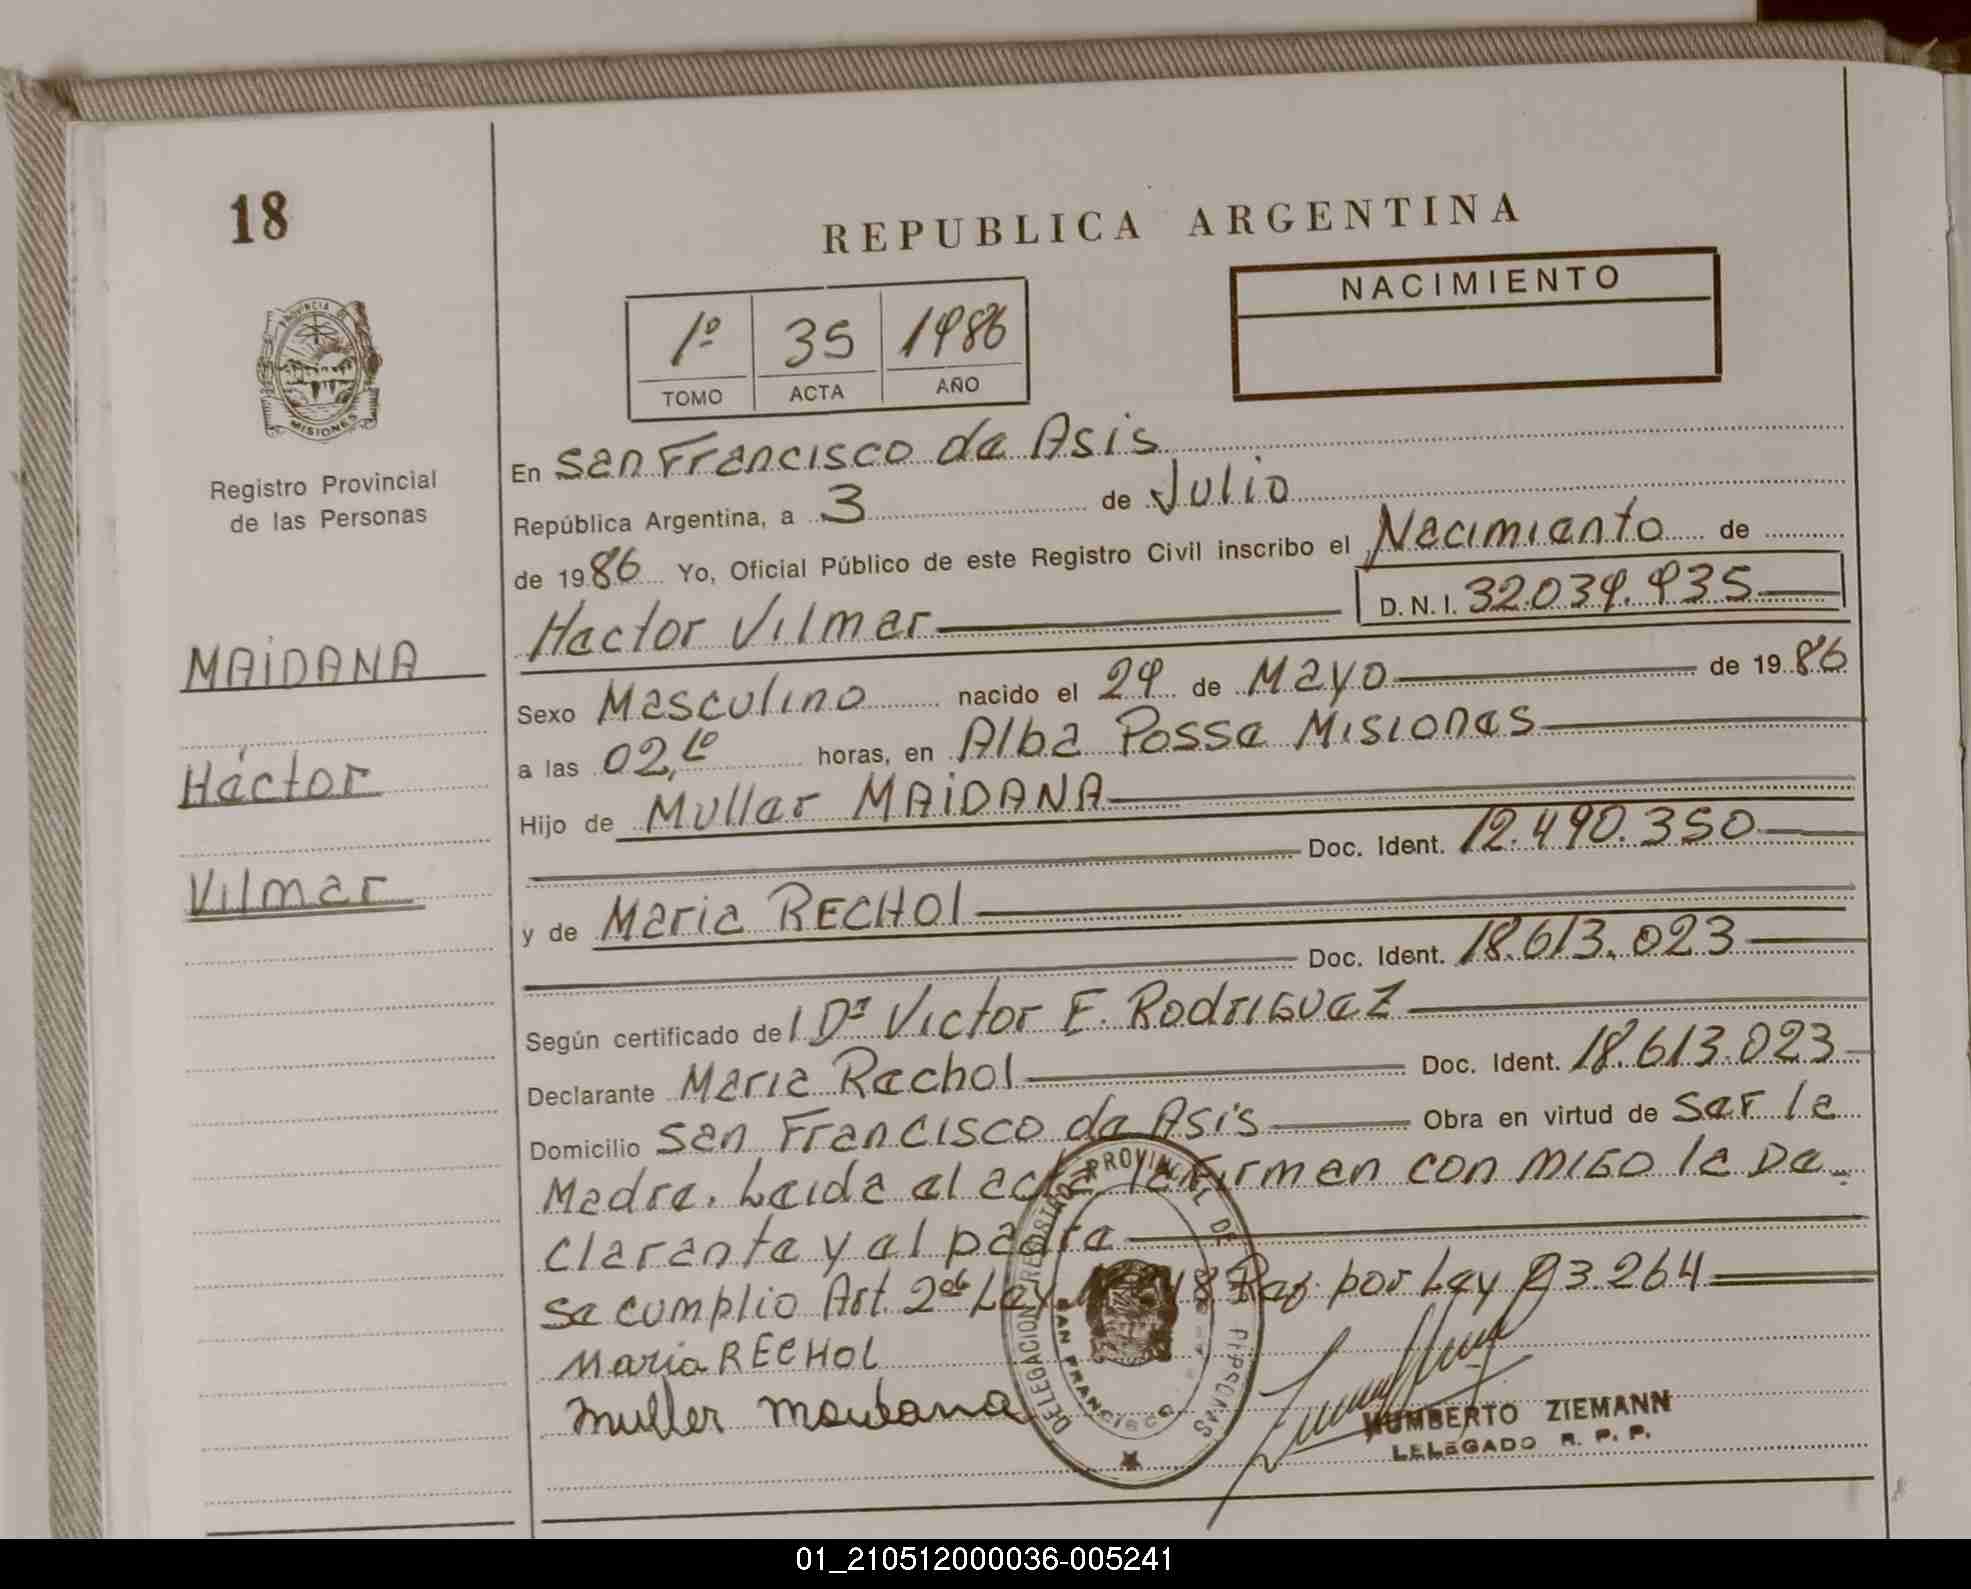 18
REPUBLICA ARGENTINA
NACIMIENTO
1º 35 1986
TOMO ACTA AÑO
PROVINCIA DE
MISIONES
Registro Provincial
de las Personas
MAiDANA
Héctor
Vilmar
En San Francisco de Asis
República Argentina, a 3 de Julio
de 1986 Yo, Oficial Público de este Registro Civil inscribo el Nacimiento de
Hector Vilmar D. N. I. 32.039.935
Sexo Masculino nacido el 29 de Mayo de 1986
a las 02,10 horas, en Alba Posse Misiones
Hijo de Muller MAiDANA
Doc. Ident. 12.490.350
y de Maria RECHOl
Doc. Ident. 18.613.023
Según certificado del Dr Victor E. Rodriguez
Declarante Maria Rechol Doc. Ident. 18.613.023
Domicilio San Francisco de Asis Obra en virtud de ser la
Madre. Leida el acta la Firman con migo la De-
clarante y el padre
se cumplio Art. 2do Ley por Ley 23.264
Maria RECHOL
muller maidana
DELEGACION REGISTRO PROVINCIAL DE PERSONAS
SAN FRANCISCO
HUMBERTO ZIEMANN
LELEGADO R. P. P.
01_210512000036-005241